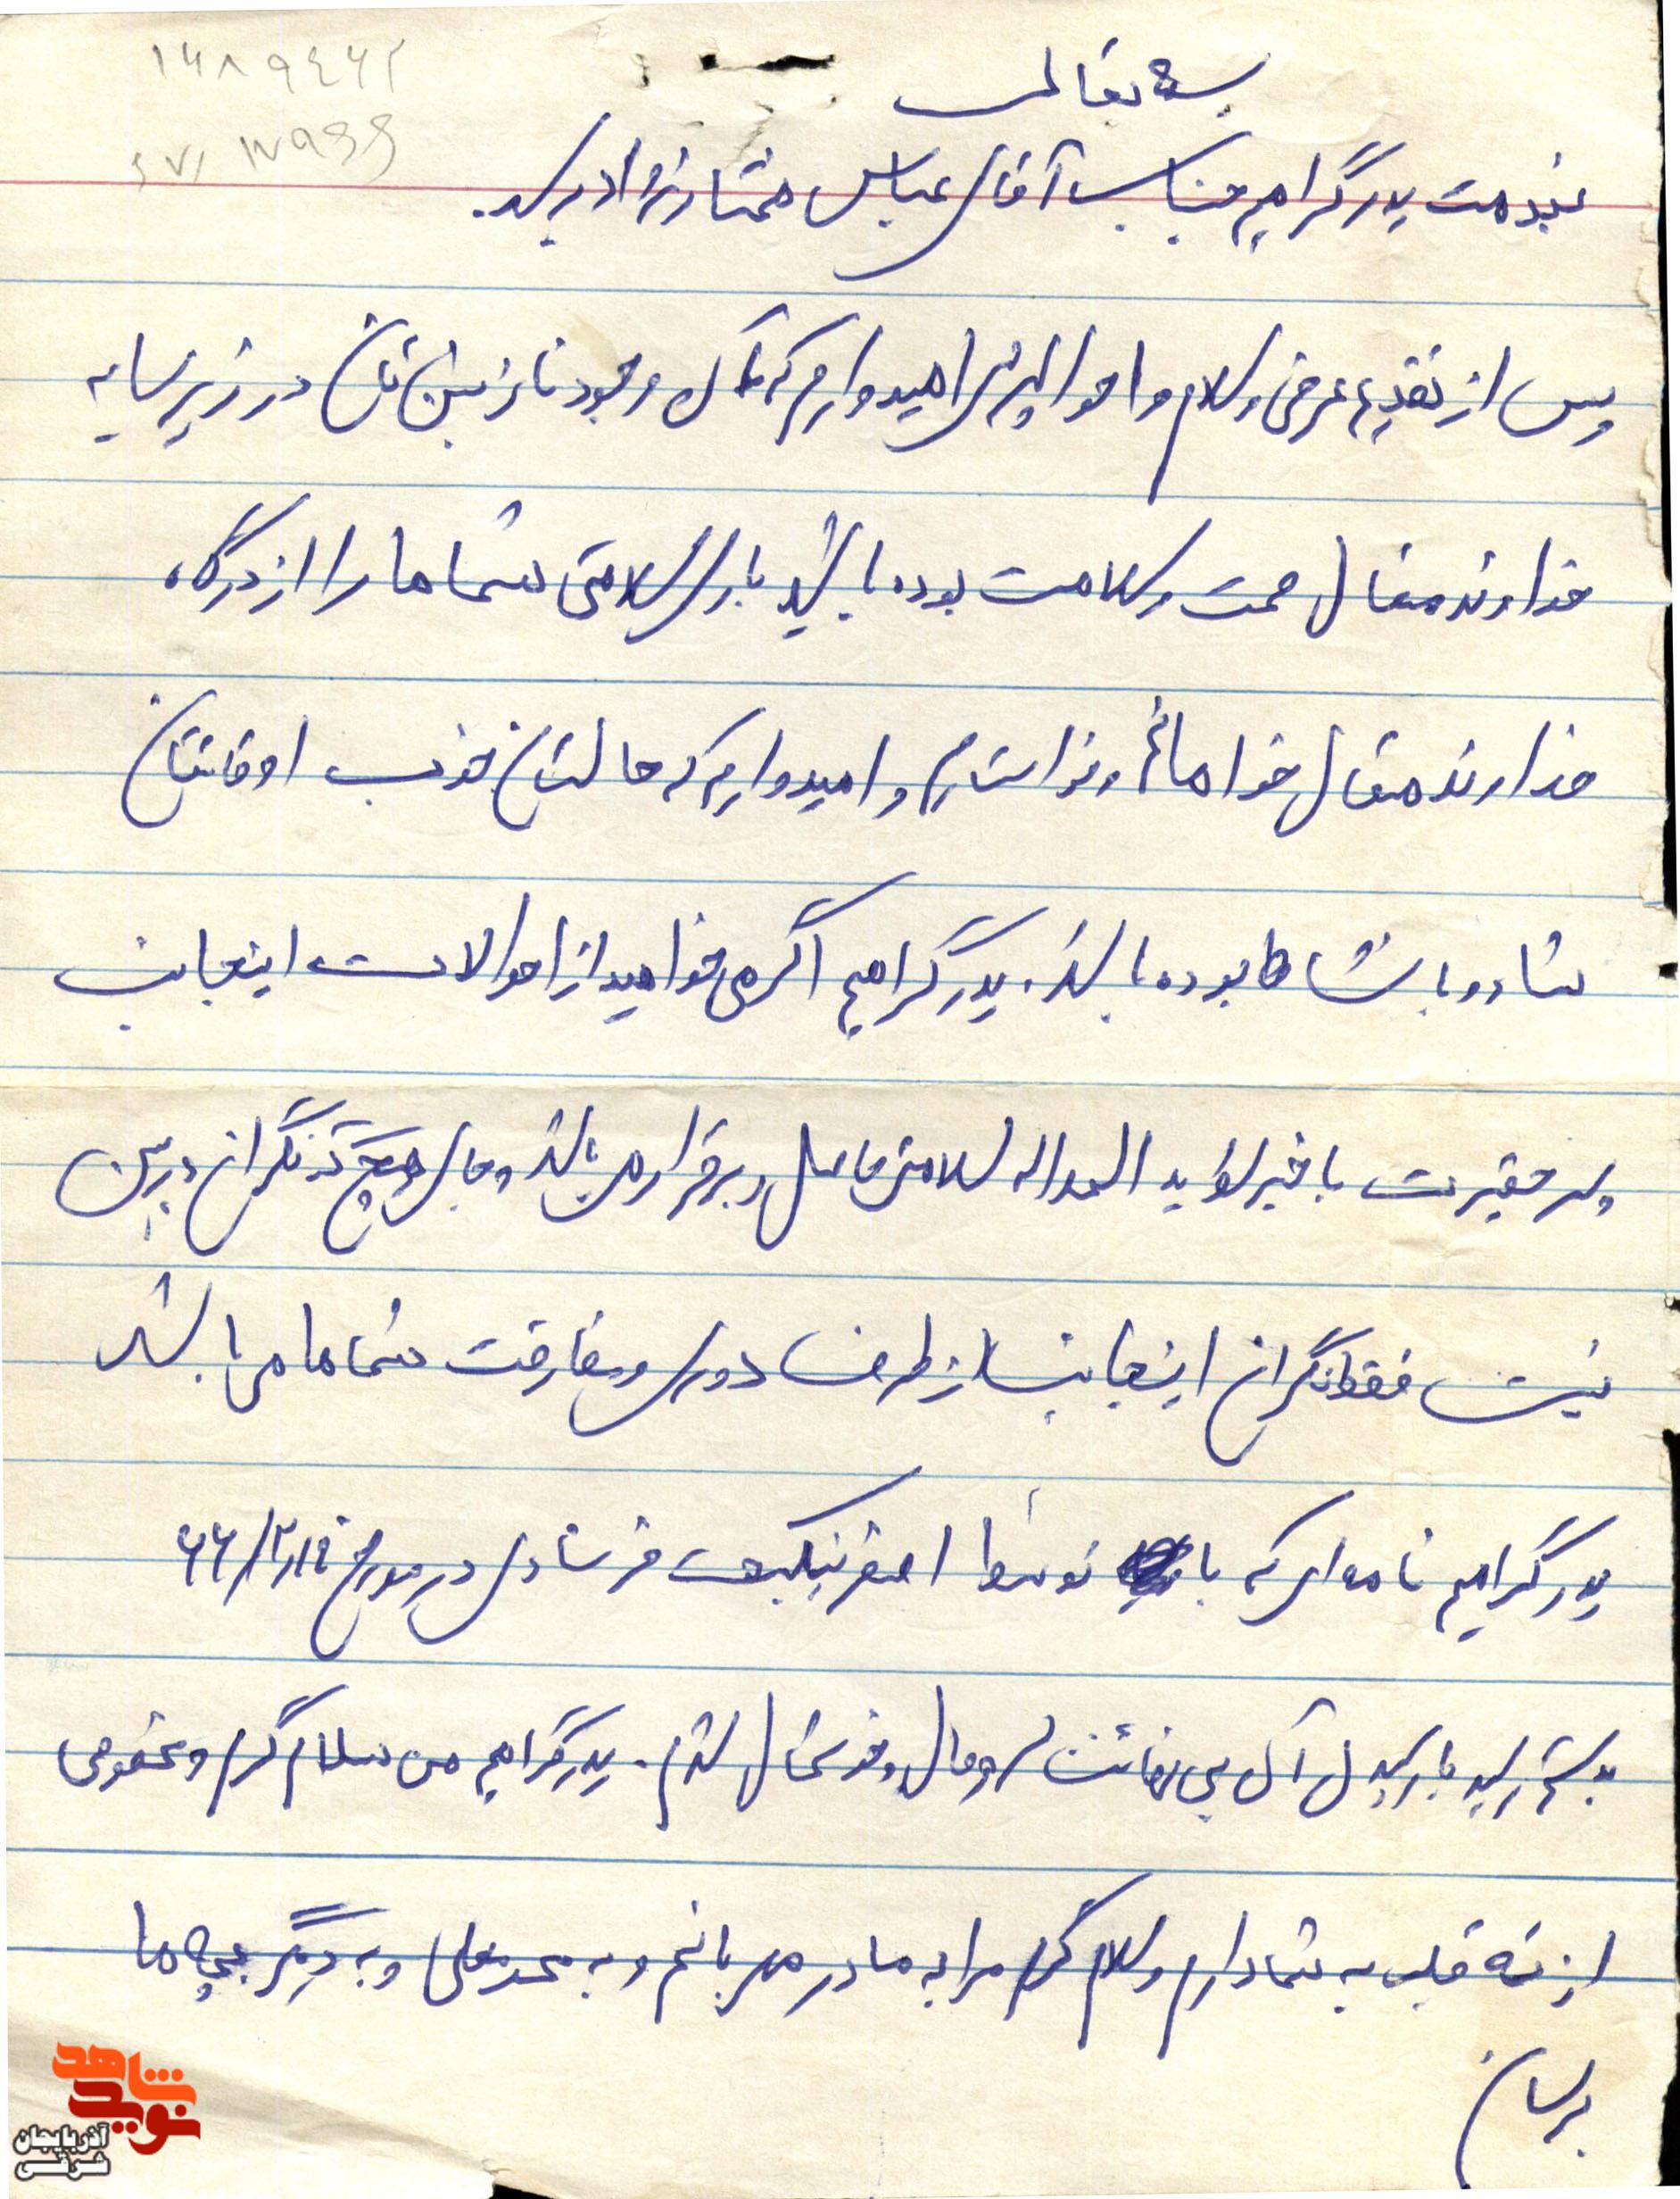 ۱۶۸۹۴۶۲
بسمه تعالی
بخدمت پدر گرامیم جناب آقای عباس ممتازنژاد برسد.
پس از تقدیم عرض سلام و احوالپرسی امیدوارم که وجود نازنین تان در زیر سایه
خداوند متعال صحت و سلامت بوده باشید باری سلامتی شماها را از درگاه
خداوند متعال خواهانم و خواستارم و امیدوارم که حالتان خوب اوقاتتان
شاد و با نشاط بوده باشد. پدر گرامیم اگر می خواهید از احوالات اینجانب
پسر حقیرت با خبر شوید الحمداله سلامتی حاصل و برقرار می باشد و جای هیچگونه نگرانی در بین
نیست فقط نگرانی اینجانب از طرف دوری و مفارقت شماها می باشد
پدر گرامیم نامه ای که با توسط اصغر نیکبخت فرستادی در مورخ ۶۶/۲/۱۴
بدستم رسید با رسیدن آن بی نهایت و خوشحال شدم. پدر گرامیم من سلام گرم و مخصوصی
از ته قلب به شما دارم و سلام گرم مرا به مادر مهربانم و به محمدعلی و به دیگر بچه ها
برسان
نوید شاهد
آذربایجان
شرقی